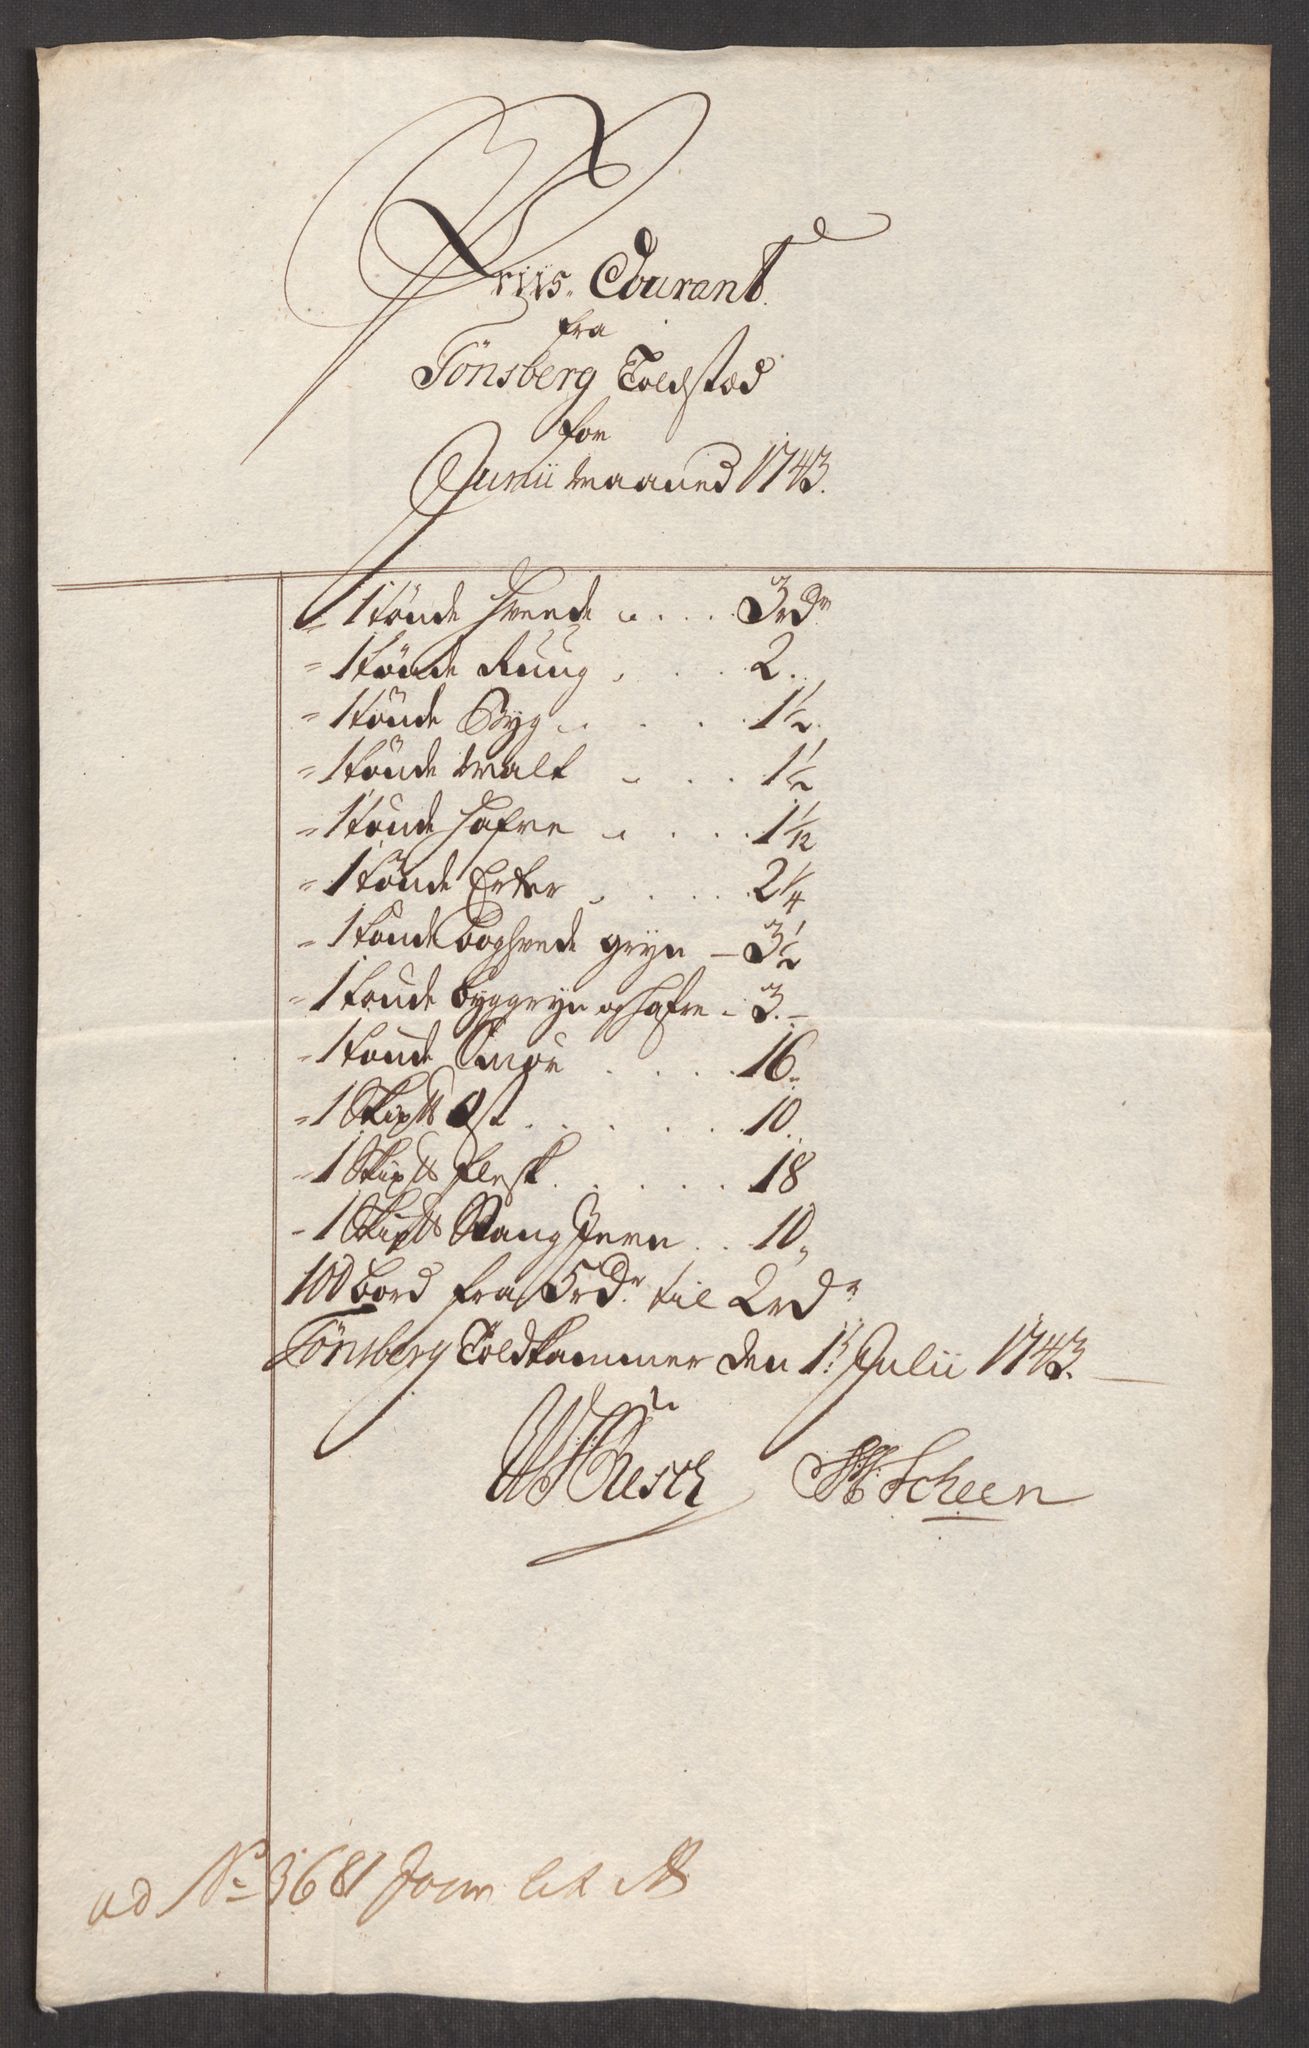 Priis Courant
fra
Tönsberg Toldstæd
for
Junii Maaned 1743.
" 1 tönde Hvede . . . . 3 rdr
" 1 tönde Ruug . . . . 2 . .
" 1 tönde Byg . . . . 1 1/2.
" 1 tönde Malt . . . 1 1/2
" 1 tönde Hafre . . . . 1 1/12
" 1 tönde Erter . . . . 2 1/4
" 1 tönde Boghvede gryn - 3 1/2
" 1 tönde byggryn og Hafre - 3. -
" 1 tönde Smør . . . . 16 "
" 1 Skip℔ Ost . . . . . 10 . .
" 1 Skip℔ Flesk . . . . . 18
- 1 Skip℔ Stang Jern . . 10 "
100 bord fra 5 rdr til 2 rdr
Tönsberg Toldkammer den 1t Julii 1743. -
Resch Scheen
ad No 3681 Jour lit A